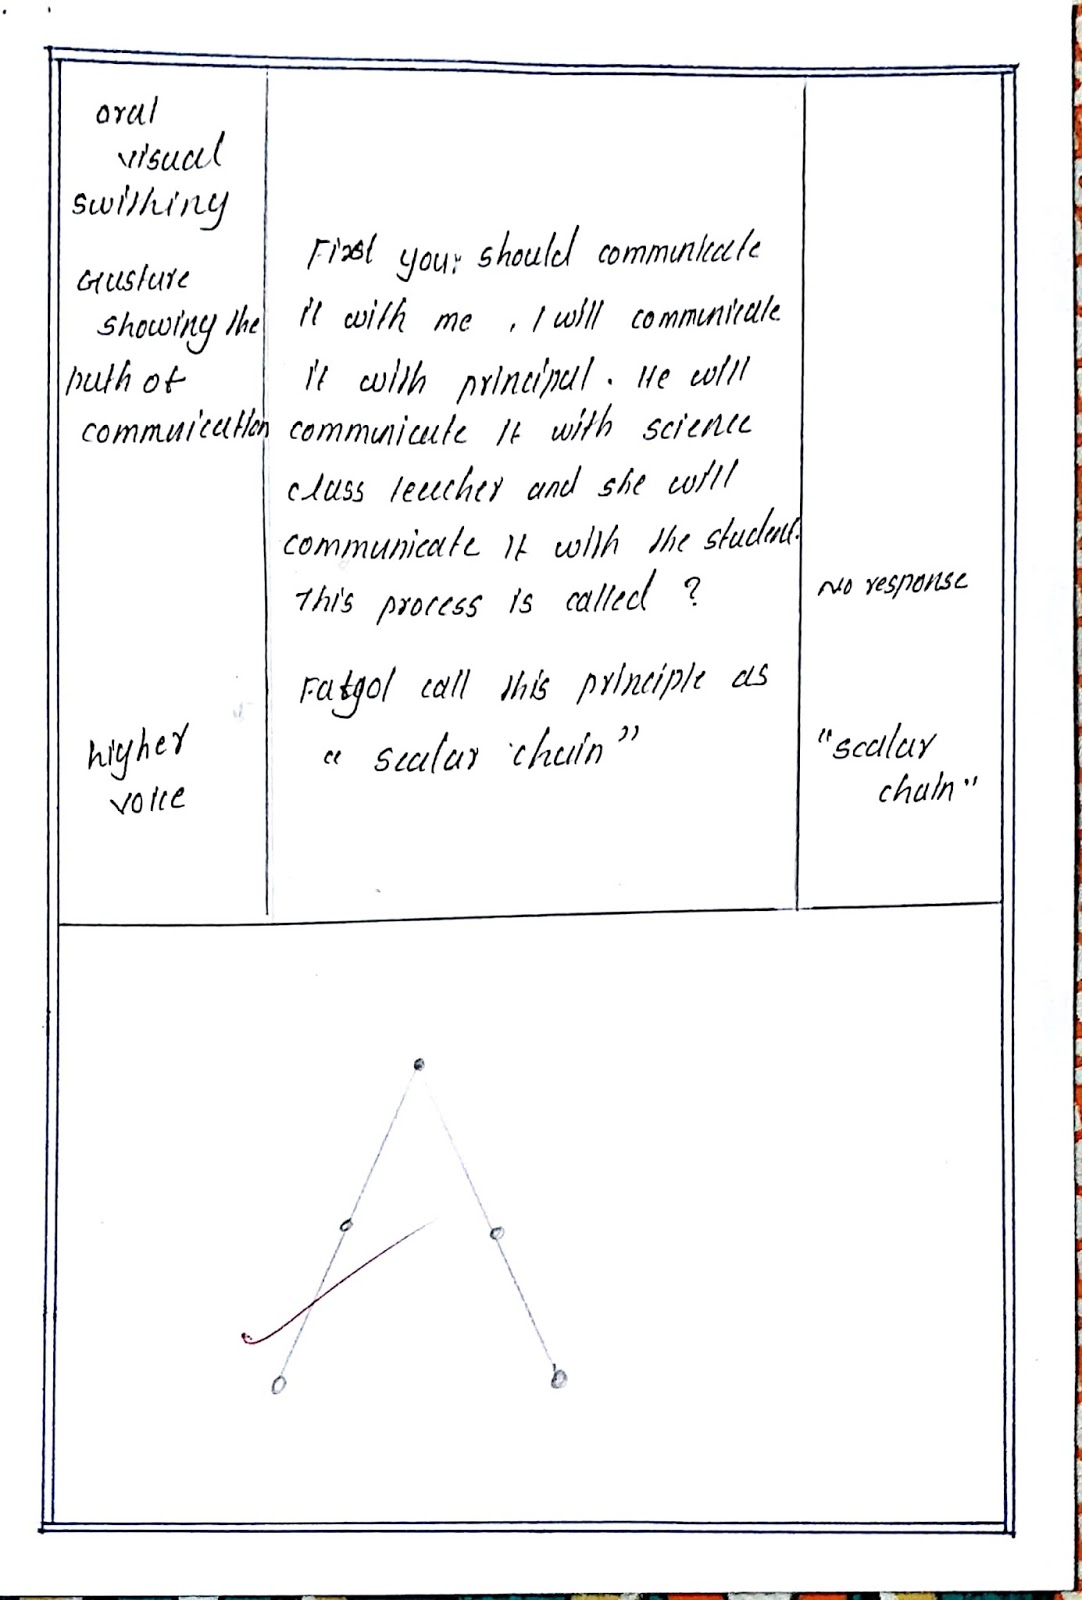 oral
visual
swithing
Gusture
showing the
path of
communication
First your should communicate
it with me , I will communicate
it with principal . He will
communicate it with science
class teacher and she will
communicate it with the student.
This process is called ?
Fatgol call this principle as
" scalar chain "
higher
voice
No response
"scalar
chain"